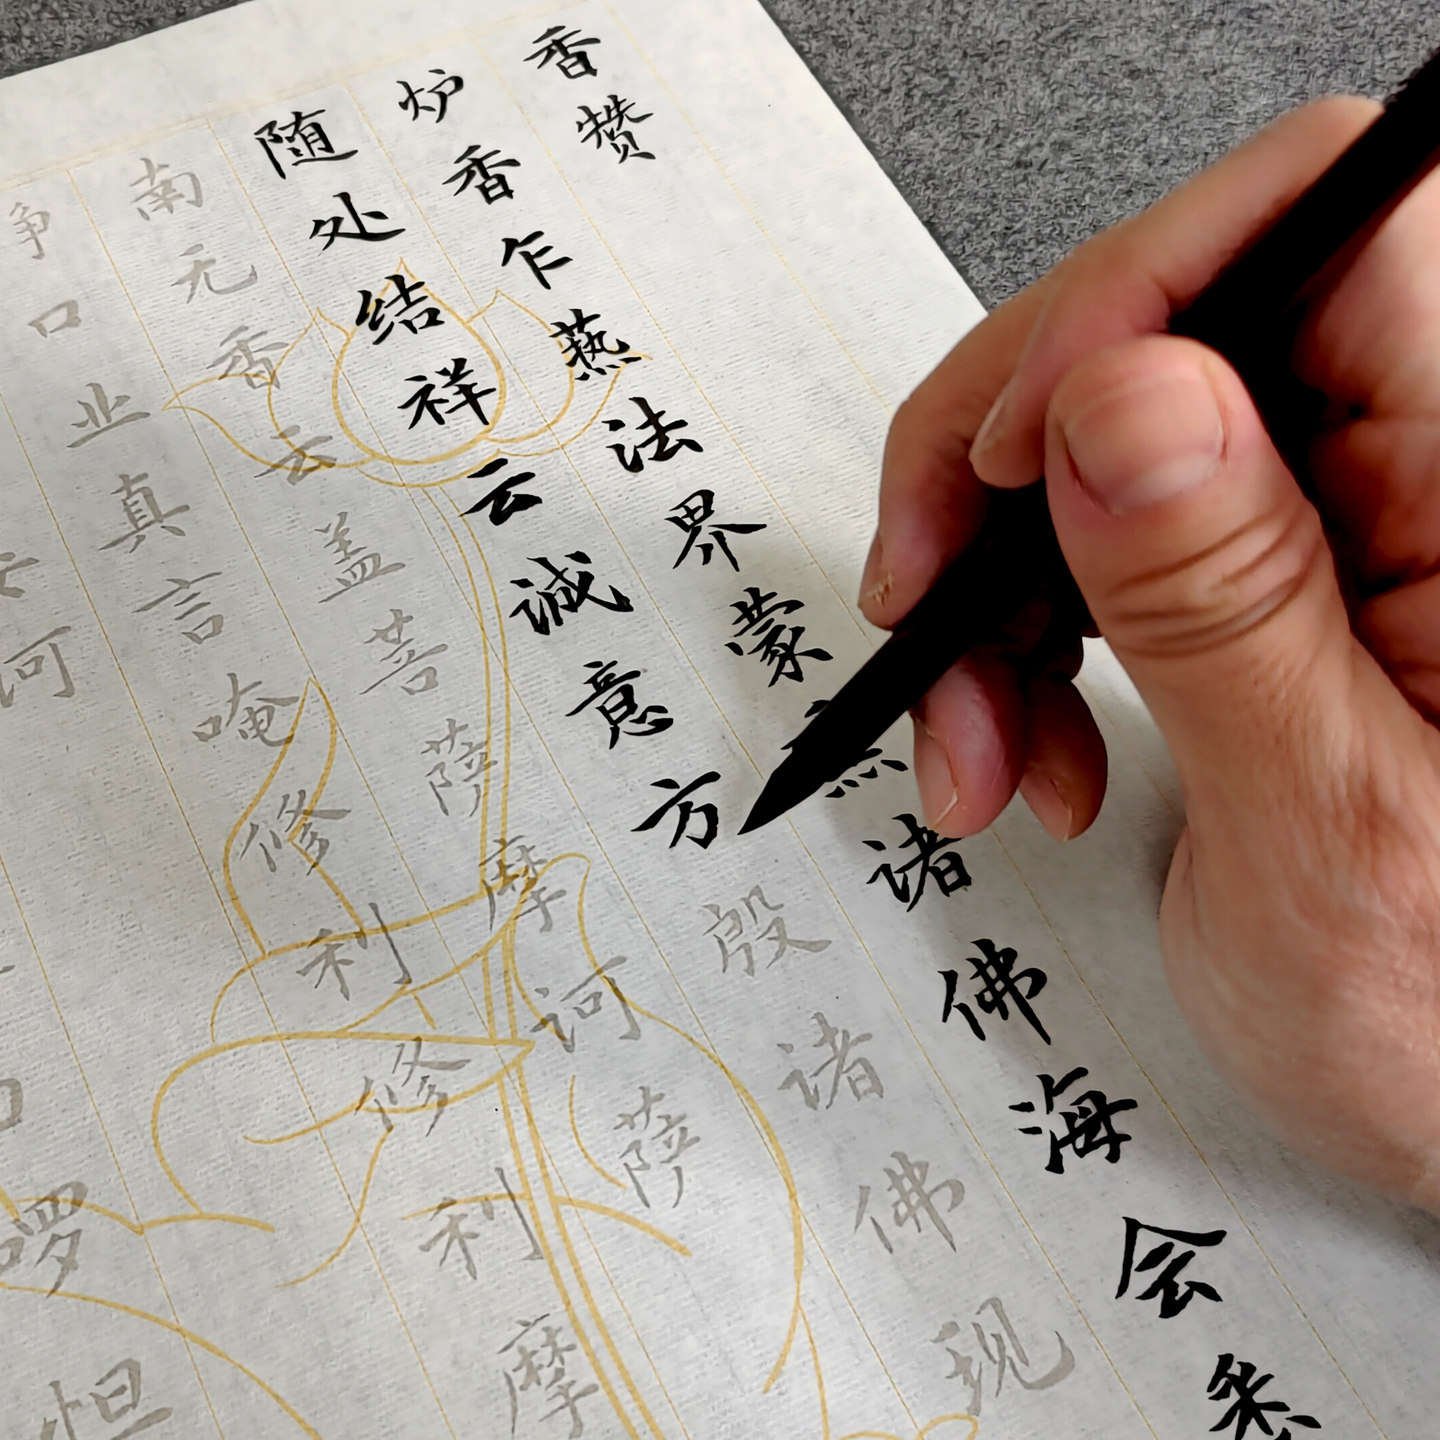 香赞
炉香乍爇法界蒙熏诸佛海会悉
随处结祥云诚意方殷诸佛现
南无香云盖菩萨摩诃萨
净口业真言唵修利修利摩
诃啰怛